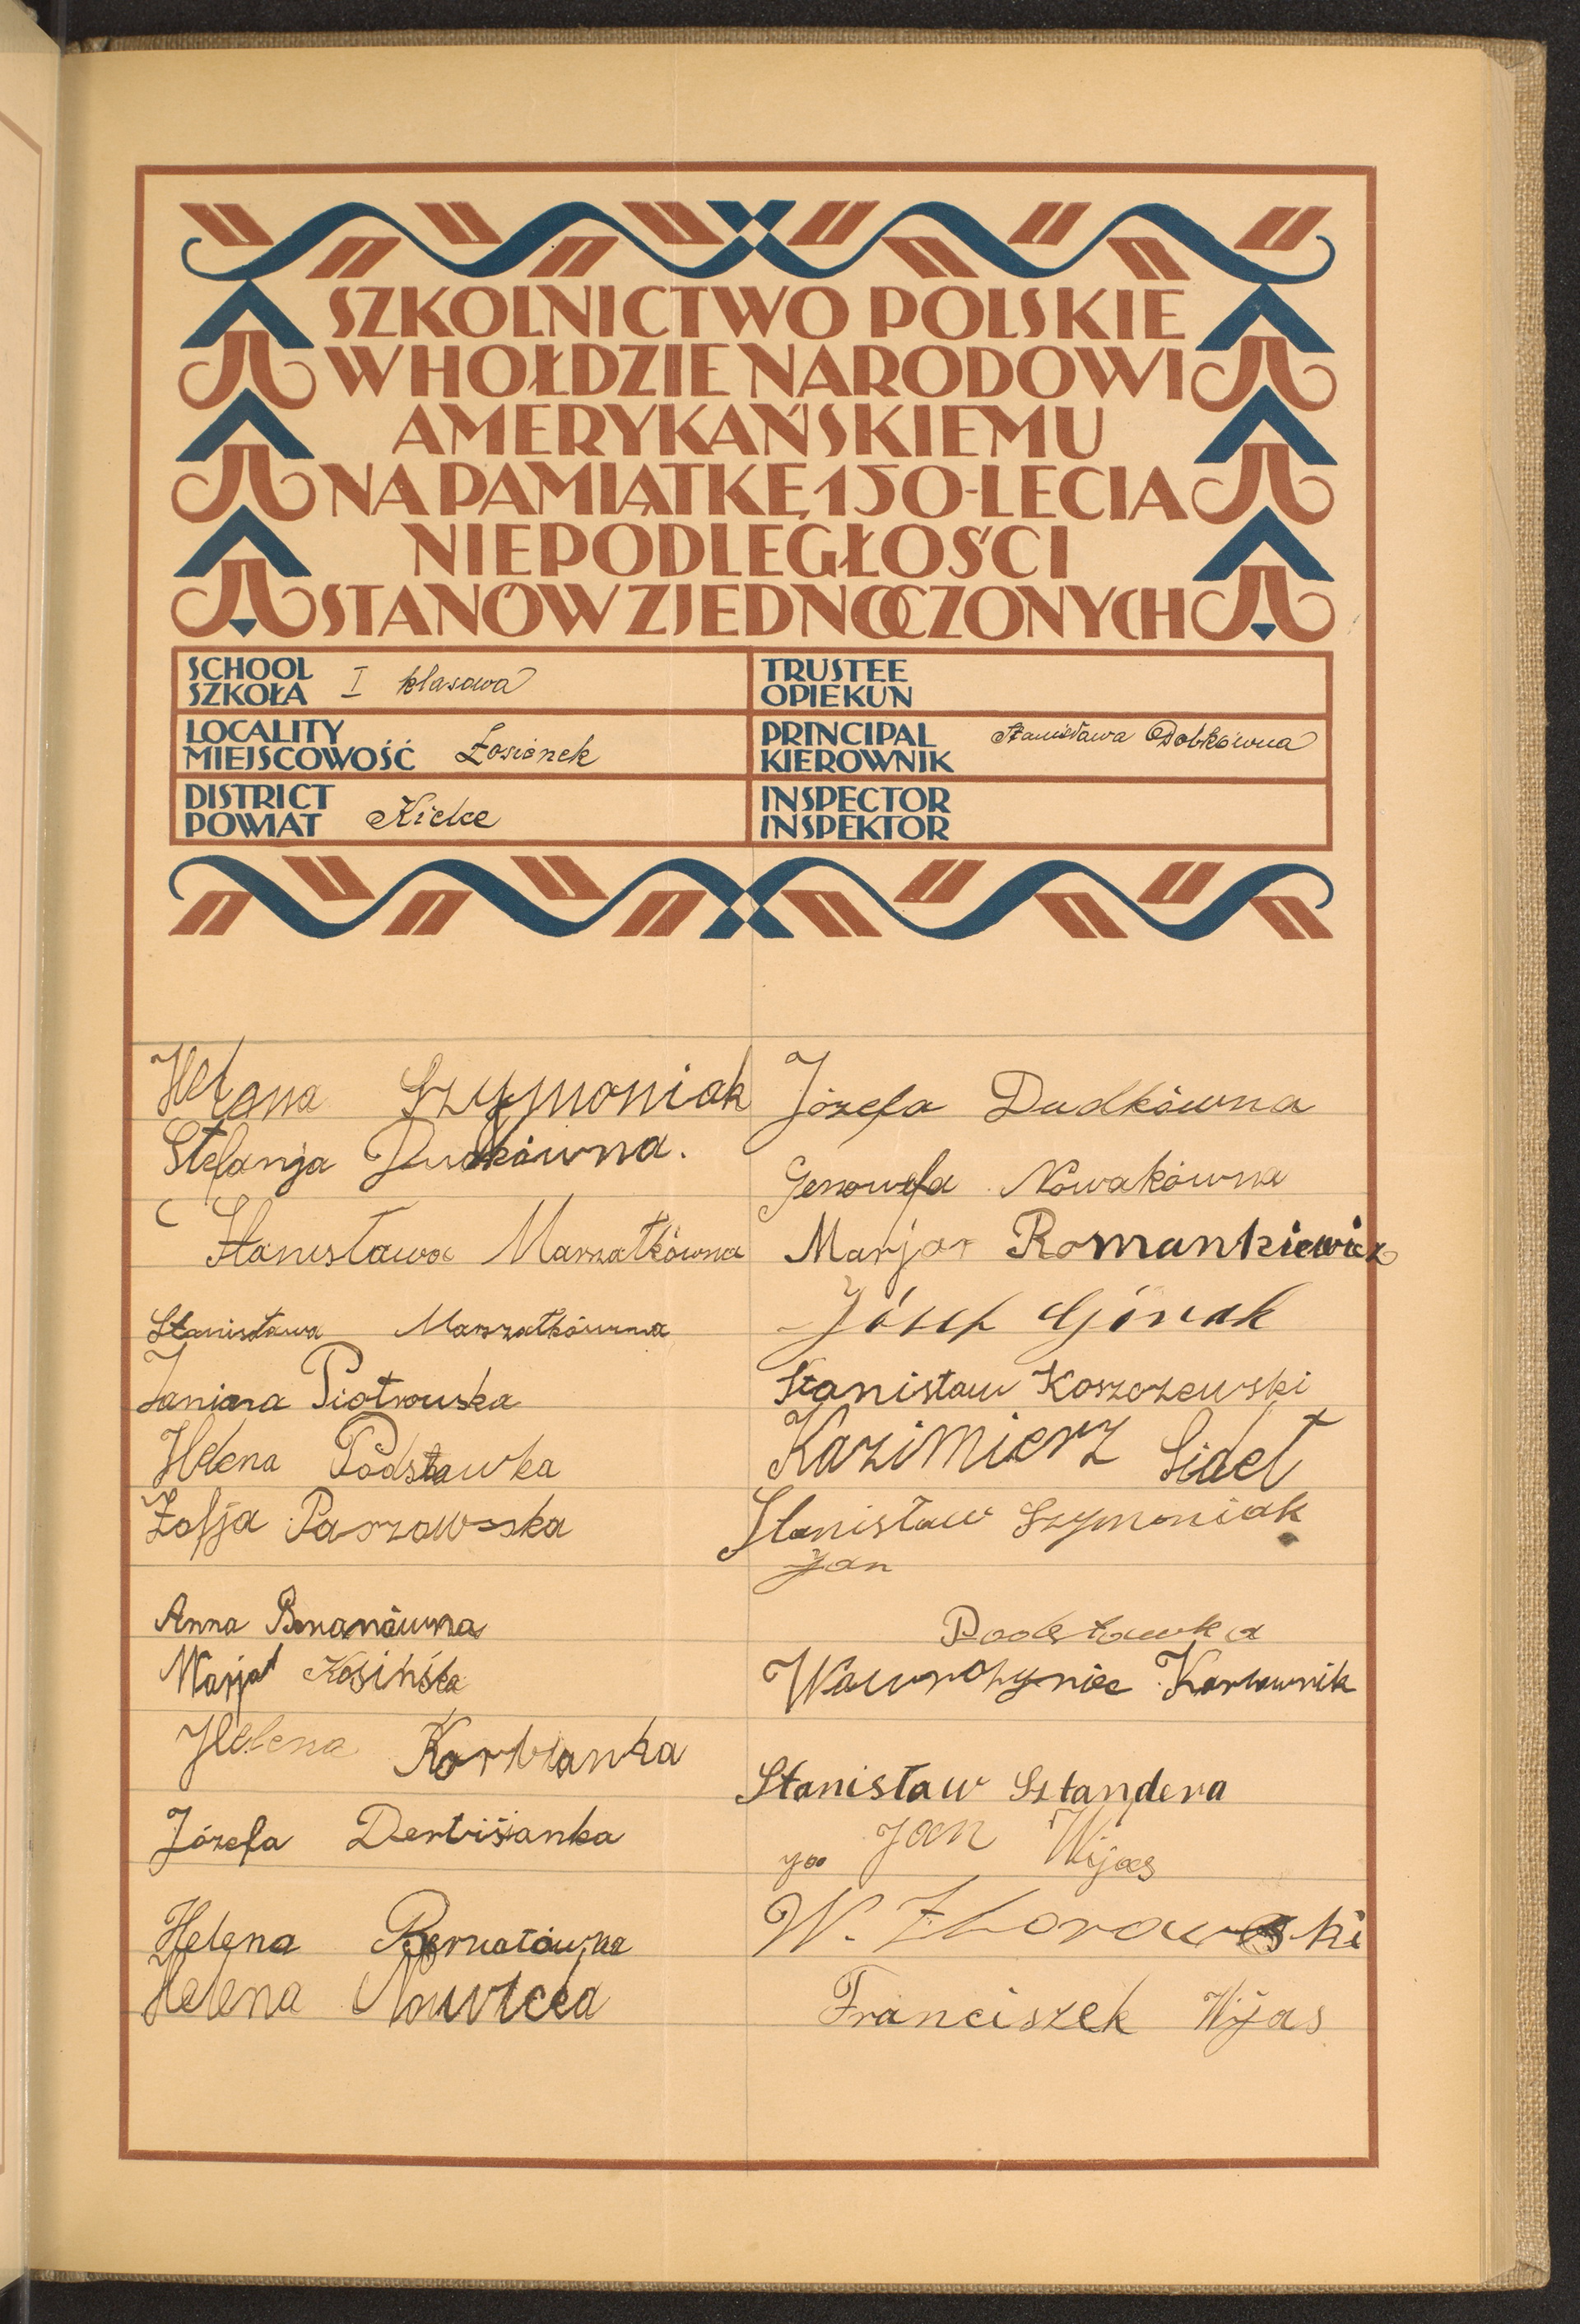 SZKOLNICTWO POLSKIE
W HOŁDZIE NARODOWI
AMERYKAŃSKIEMU
NA PAMIĄTKĘ 150-LECIA
NIEPODLEGŁOŚCI
STANÓW ZJEDNOCZONYCH
SCHOOL
SZKOŁA I klasowa
TRUSTEE
OPIEKUN
LOCALITY
MIEJSCOWOŚĆ Łosionek
PRINCIPAL
KIEROWNIK Stanisława Dobkówna
DISTRICT
POWIAT Kielce
INSPECTOR
INSPEKTOR
Helena Szymoniak
Stefanja Dudkówna.
Stanisława Marszałkówna
Stanisława Marszałkówna
Janina Piotrowska
Helena Podstawka
Zofja Parzowska
Anna Bananówna
Marja Kosińska
Helena Korbianka
Józefa Derbisianka
Helena Bernatówna
Helena
Józefa Dudkówna
Genowefa Nowakówna
Marjan Romankiewicz
Józef Górak
Stanisław Koszczewski
Kazimierz Sideł
Stanisław Szymoniak
Jan
Podstawka
Wawrzyniec Karwownik
Stanisław Sztandera
Jan Wijas
W. Zborowski
Franciszek Wijas